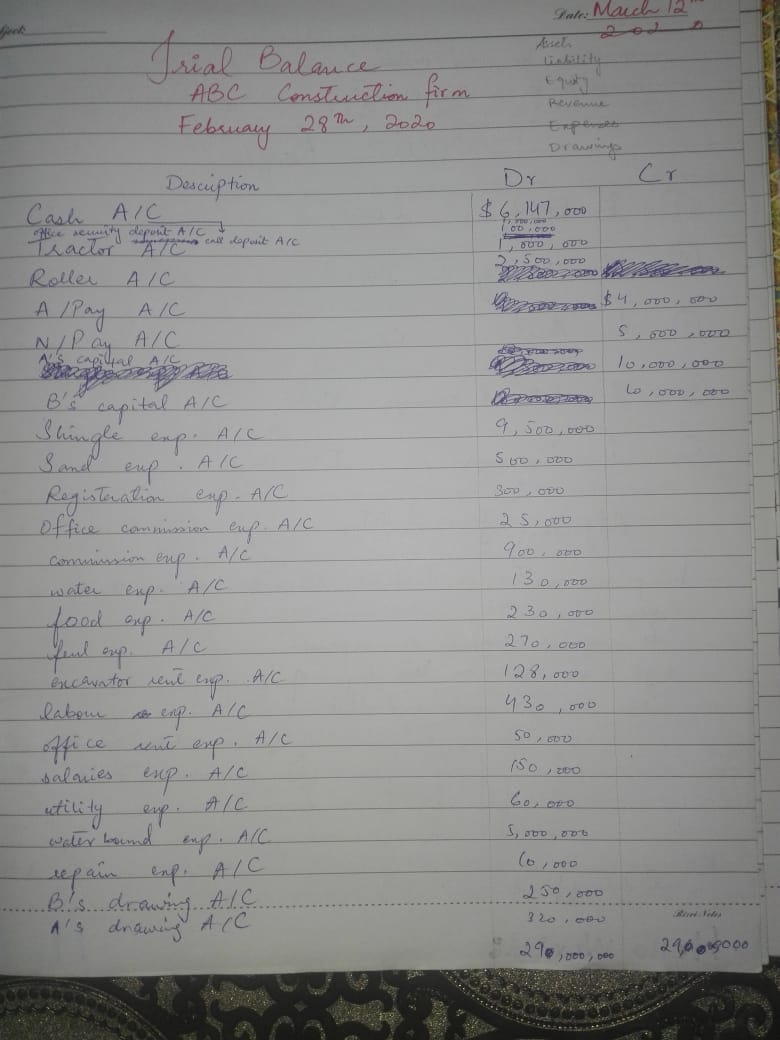 Date: March 12th
2020
Assets
Liability
Equity
Revenue
Expenses
Drawings
Trial Balance
ABC Construction firm
February 28Th, 2020
Description Dr Cr
Cash A/C $6,147,000
office security deposit A/C 100,000
call deposit A/C 1,000,000
Tractor A/C 1,000,000
Roller A/C 2,500,000
A/Pay A/C $4,000,000
N/Pay A/C 5,000,000
A's capital A/C 10,000,000
B's capital A/C 10,000,000
Shingle exp. A/C 9,500,000
Sand exp. A/C 500,000
Registeration exp. A/C 300,000
Office commission exp. A/C 25,000
commission exp. A/C 900,000
water exp. A/C 130,000
food exp. A/C 230,000
fuel exp. A/C 270,000
excavator rent exp. A/C 128,000
labour exp. A/C 430,000
office rent exp. A/C 50,000
salaries exp. A/C 150,000
utility exp. A/C 60,000
water bound exp. A/C 5,000,000
repain exp. A/C 10,000
B's drawing A/C 250,000
A's drawing A/C 320,000
29,000,000 29,000,000